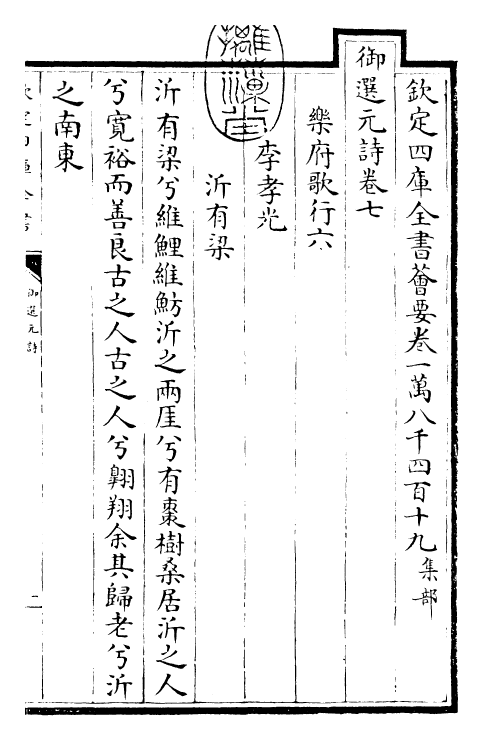 欽定四庫全書薈要卷一萬八千四百十九集部
御選元詩卷七
樂府歌行六
李孝光
沂有梁
沂有梁兮維鯉維魴沂之兩厓兮有棗樹桑居沂之人
兮寬裕而善良古之人古之人兮翺翔余其歸老兮沂
之南東
御選元詩